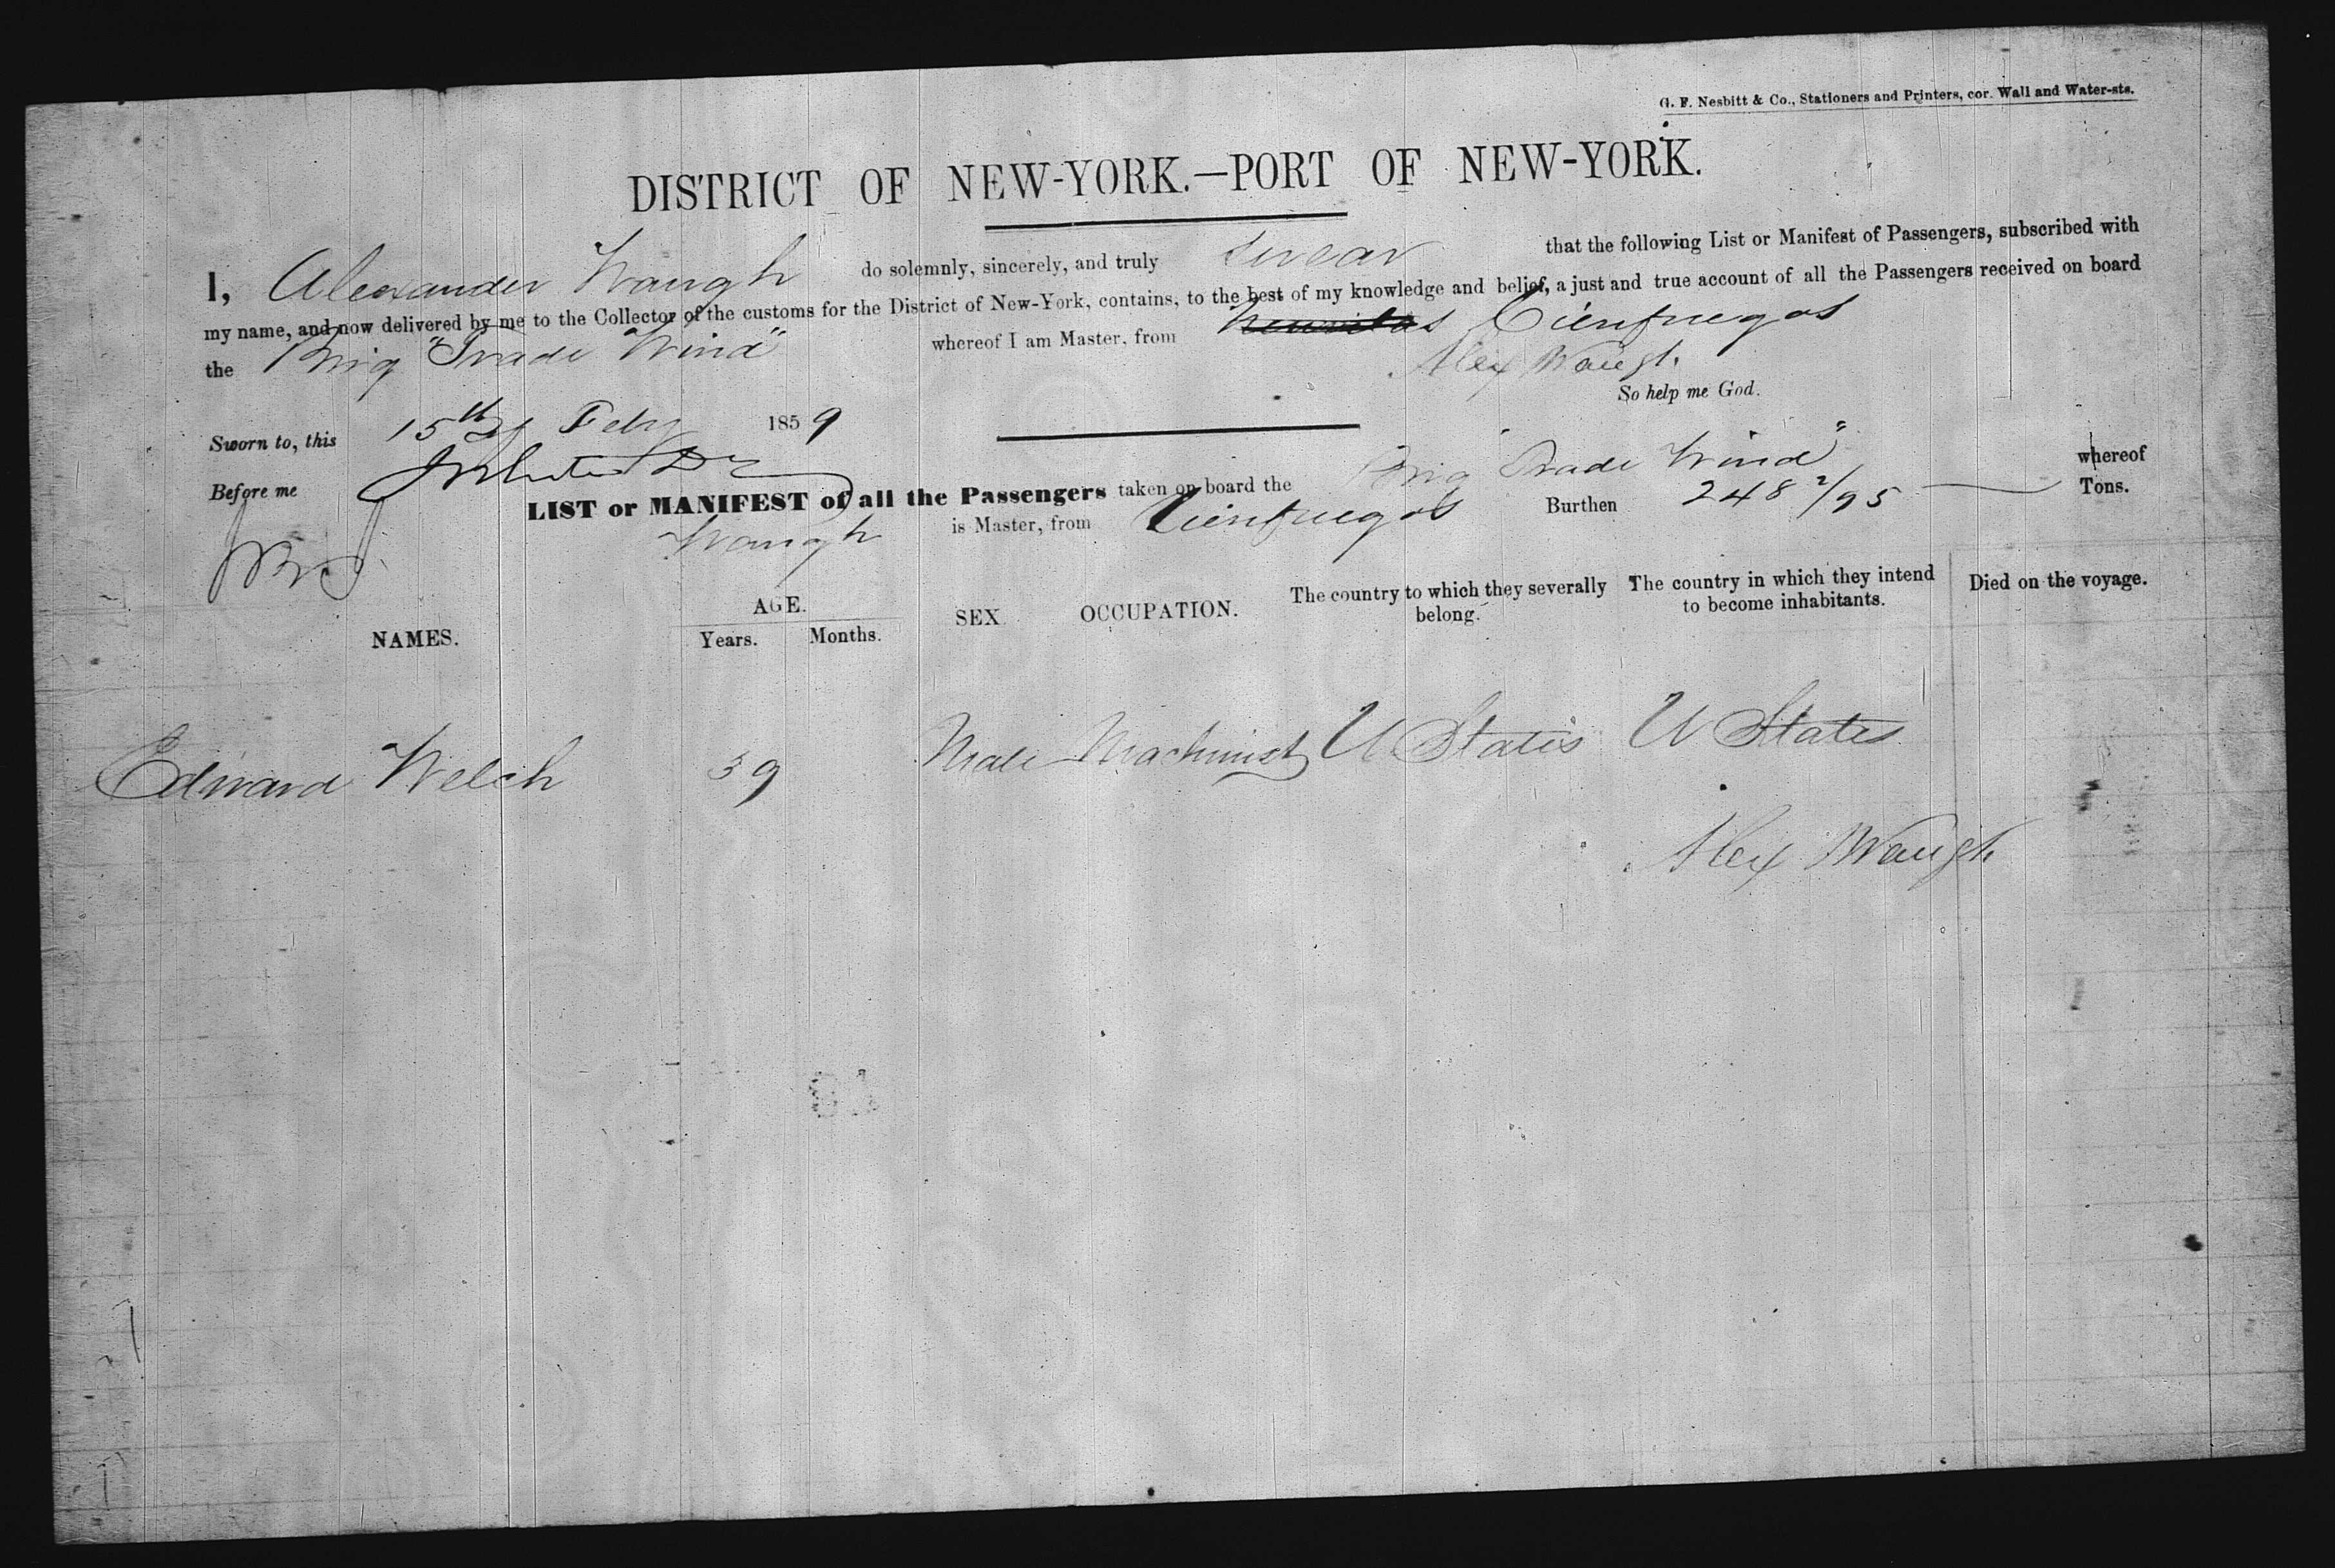 G. F. Nesbitt & Co., Stationers and Printers, cor. Wall and Water-sts.
DISTRICT OF NEW-YORK.—PORT OF NEW-YORK.
I, Alexander Waugh do solemnly, sincerely, and truly swear that the following List or Manifest of Passengers, subscribed with
my name, and now delivered by me to the Collector of the customs for the District of New-York, contains, to the best of my knowledge and belief, a just and true account of all the Passengers received on board
the Brig "Trade Wind" whereof I am Master, from Cienfuegos
Alex Waugh
So help me God.
Sworn to, this 15th Feby 1859
Before me
LIST or MANIFEST of all the Passengers taken on board the Brig Trade Wind" whereof
Waugh is Master, from Cienfuegos Burthen 248 2/95 Tons.
NAMES. AGE. Years. Months. SEX OCCUPATION. The country to which they severally belong. The country in which they intend to become inhabitants. Died on the voyage.
Edward Welch 39 Male Machinist U States U States
Alex Waugh